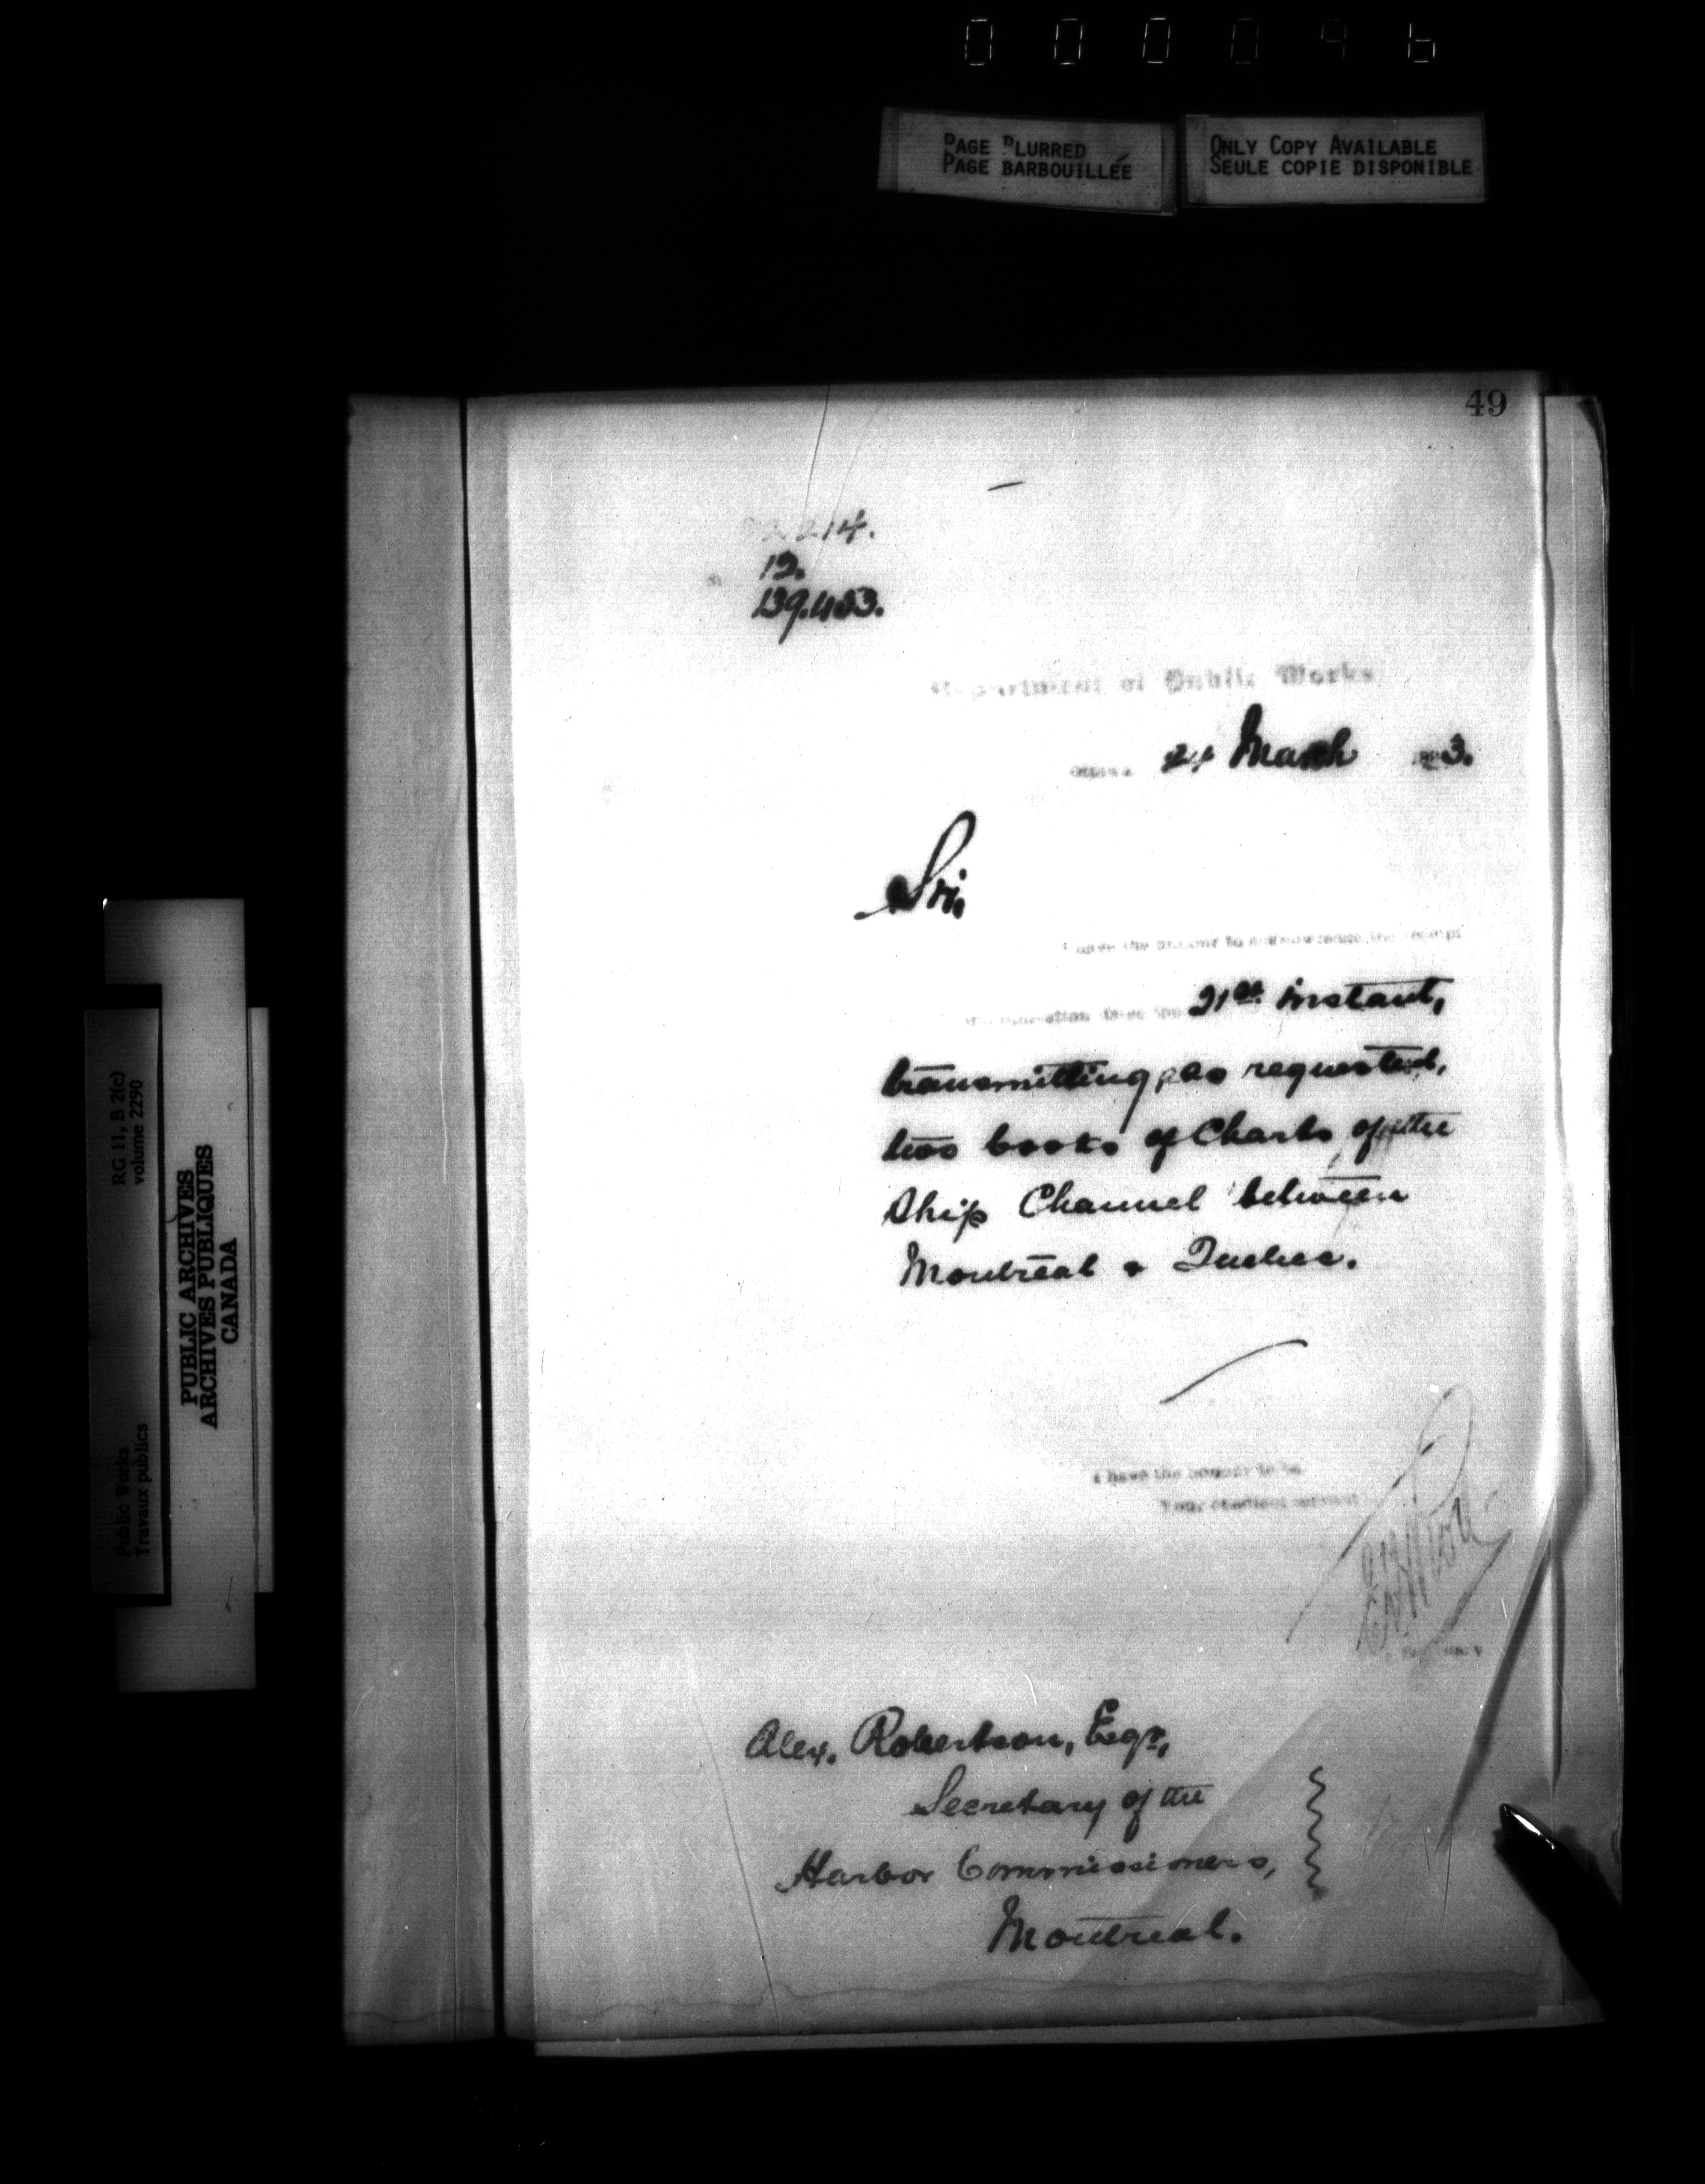 PAGE BLURRED
PAGE BARBOUILLÉE
ONLY COPY AVAILABLE
SEULE COPIE DISPONIBLE
49
214.
Department of Public Works
March 3.
Sir,
I have the honour to acknowledge the receipt
communication of the 21st instant,
transmitting, as requested,
two books of Charts of the
Ship Channel between
Montreal & Quebec.
I have the honour to be
Your obedient servant
Alex. Robertson, Esqr,
Secretary of the
Harbor Commissioners,
Montreal.
RG 11, B 2(c)
volume 2290
Public Works
Travaux publics
PUBLIC ARCHIVES
ARCHIVES PUBLIQUES
CANADA